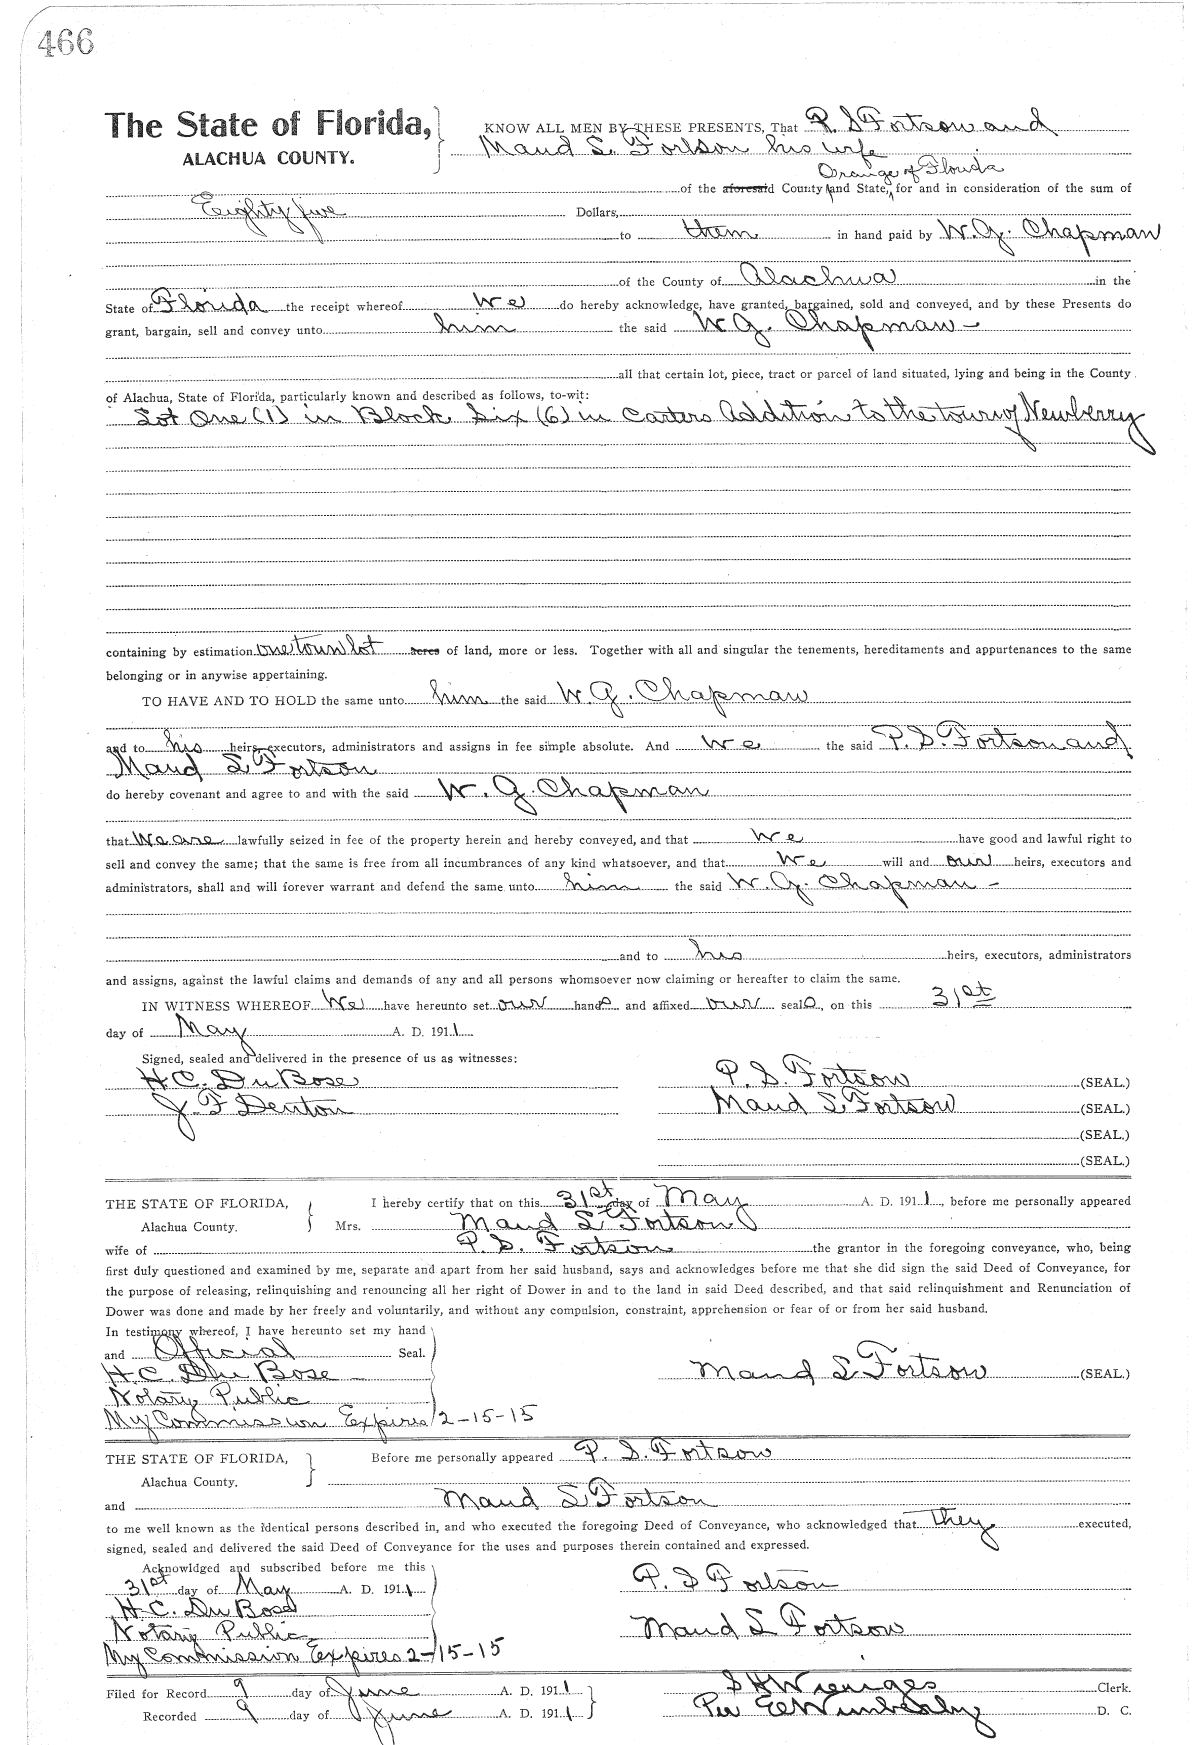 466
The State of Florida,
ALACHUA COUNTY.
KNOW ALL MEN BY THESE PRESENTS, That P. S. Fortson and
Maud S. Fortson his wife
Orange of Florida
of the aforesaid County and State, for and in consideration of the sum of
Eighty five Dollars,
to them in hand paid by W. G. Chapman
of the County of Alachua in the
State of Florida the receipt whereof we do hereby acknowledge, have granted, bargained, sold and conveyed, and by these Presents do
grant, bargain, sell and convey unto him the said W. G. Chapman -
all that certain lot, piece, tract or parcel of land situated, lying and being in the County
of Alachua, State of Florida, particularly known and described as follows, to-wit:
Lot One (1) in Block Six (6) in Carters Addition to the town of Newberry
containing by estimation one town lot acres of land, more or less. Together with all and singular the tenements, hereditaments and appurtenances to the same
belonging or in anywise appertaining.
TO HAVE AND TO HOLD the same unto him the said W. G. Chapman
and to his heirs, executors, administrators and assigns in fee simple absolute. And we the said P. S. Fortson and
Maud S. Fortson
do hereby covenant and agree to and with the said W. G. Chapman
that we are lawfully seized in fee of the property herein and hereby conveyed, and that we have good and lawful right to
sell and convey the same; that the same is free from all incumbrances of any kind whatsoever, and that we will and our heirs, executors and
administrators, shall and will forever warrant and defend the same unto him the said W. G. Chapman -
and to his heirs, executors, administrators
and assigns, against the lawful claims and demands of any and all persons whomsoever now claiming or hereafter to claim the same.
IN WITNESS WHEREOF We have hereunto set our hands and affixed our seals, on this 31st
day of May A. D. 1911.
Signed, sealed and delivered in the presence of us as witnesses:
H. C. DuBose P. S. Fortson (SEAL.)
J. F Denton Maud S. Fortson (SEAL.)
(SEAL.)
(SEAL.)
THE STATE OF FLORIDA, I hereby certify that on this 31st day of May A. D. 1911, before me personally appeared
Alachua County. Mrs. Maud S. Fortson
wife of P. S. Fortson the grantor in the foregoing conveyance, who, being
first duly questioned and examined by me, separate and apart from her said husband, says and acknowledges before me that she did sign the said Deed of Conveyance, for
the purpose of releasing, relinquishing and renouncing all her right of Dower in and to the land in said Deed described, and that said relinquishment and Renunciation of
Dower was done and made by her freely and voluntarily, and without any compulsion, constraint, apprehension or fear of or from her said husband.
In testimony whereof, I have hereunto set my hand
and Official Seal.
H. C. Du Bose Maud S. Fortson (SEAL)
Notary Public
My Commission Expires 2-15-15
THE STATE OF FLORIDA, Before me personally appeared P. S. Fortson
Alachua County.
and Maud S. Fortson
to me well known as the identical persons described in, and who executed the foregoing Deed of Conveyance, who acknowledged that they executed,
signed, sealed and delivered the said Deed of Conveyance for the uses and purposes therein contained and expressed.
Acknowldged and subscribed before me this
31st day of May A. D. 1911 P. S Fortson
H. C. Du Bose
Notary Public Maud S Fortson
My Commission Expires 2-15-15
Filed for Record 9 day of June A. D. 1911 S H Wienges Clerk.
Recorded 9 day of June A. D. 1911 Per E Wimberly D. C.